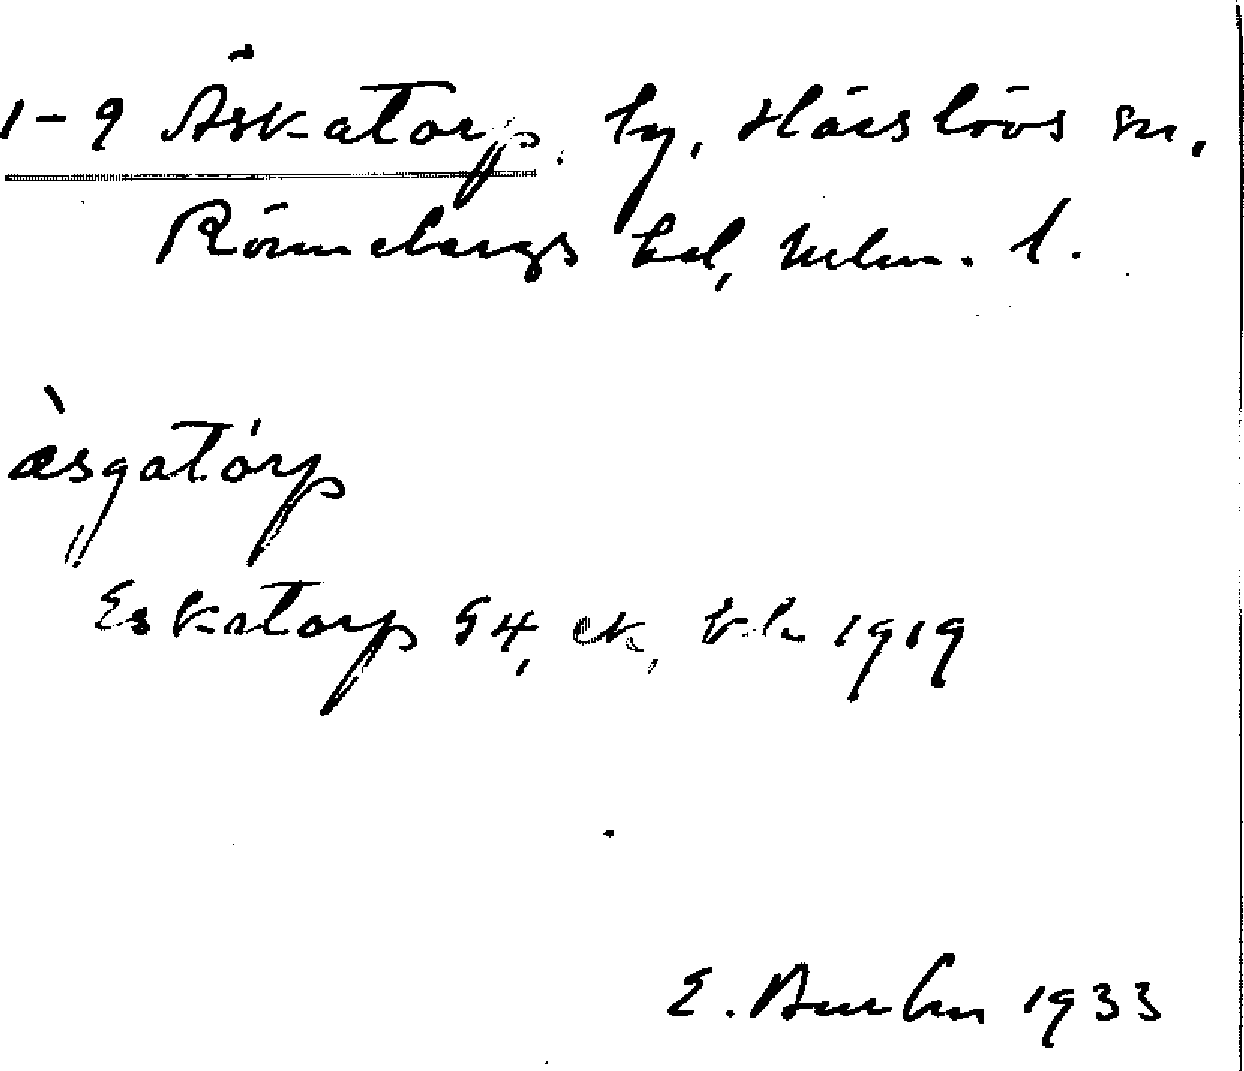 1-9 Äskatorp. by, Härslövs sn,
Rönnebergs hd, Mlm. l.
æ̀sgatórp
Eskatorp G4, ek, bl. 1919
E. 1933